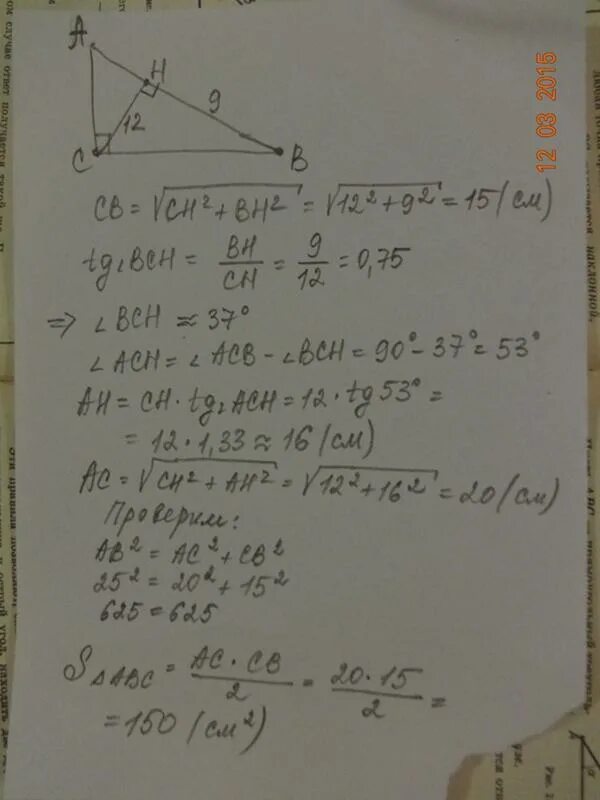 12 03 2015
A
H
9
12
C
B
CB = √CH² + BH² = √12² + 9² = 15 (см)
tg∠BCH = BH/CH = 9/12 = 0,75
⇒ ∠BCH ≈ 37°
∠ACH = ∠ACB - ∠BCH = 90° - 37° = 53°
AH = CH · tg∠ACH = 12 · tg 53° =
= 12 · 1,33 ≈ 16 (см)
AC = √CH² + AH² = √12² + 16² = 20 (см)
Проверим:
AB² = AC² + CB²
25² = 20² + 15²
625 = 625
S△ABC = AC · CB/2 = 20 · 15/2 =
= 150 (см²)